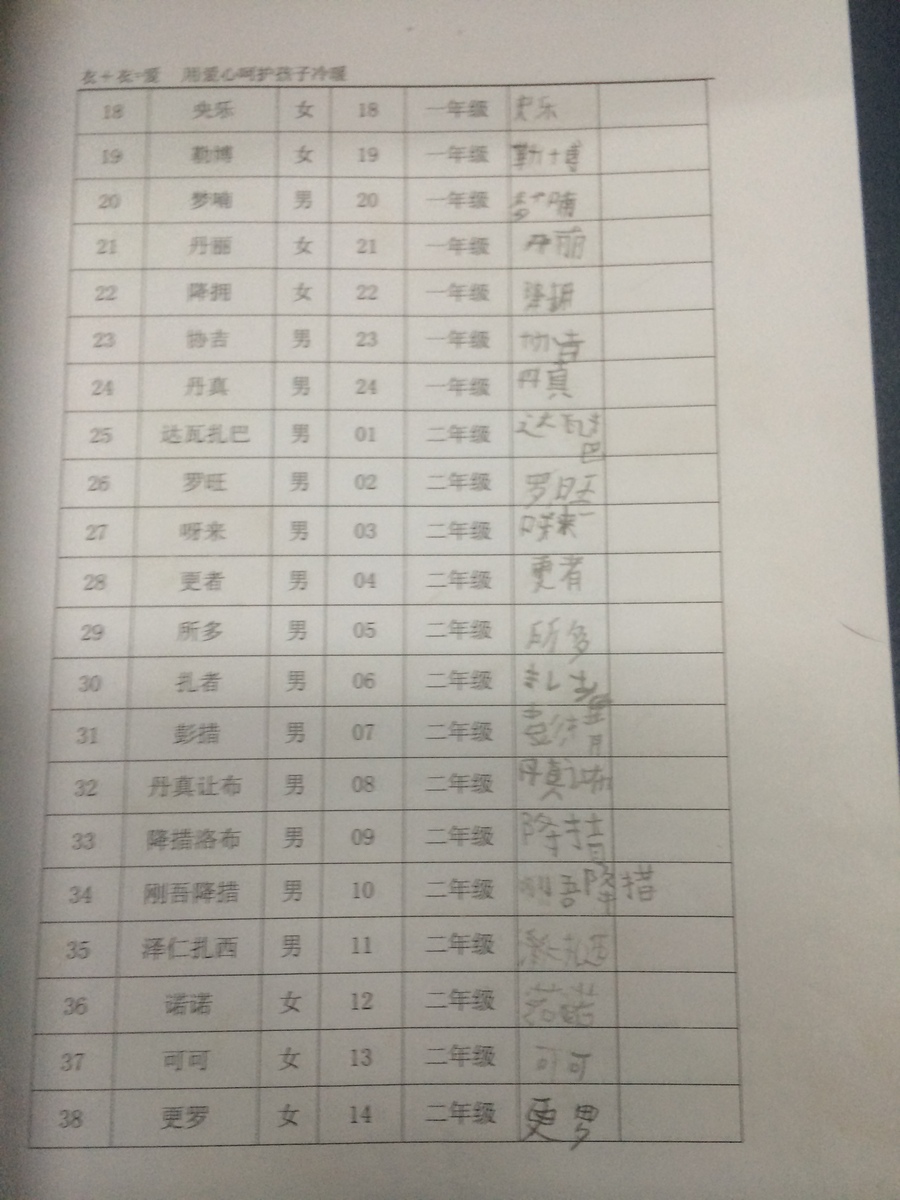 衣+衣=爱 用爱心呵护孩子冷暖
18 央乐 女 18 一年级 央乐
19 勒博 女 19 一年级 勒博
20 梦喃 男 20 一年级
21 丹丽 女 21 一年级 丹丽
22 降拥 女 22 一年级 降拥
23 协吉 男 23 一年级 协吉
24 丹真 男 24 一年级 丹真
25 达瓦扎巴 男 01 二年级 达瓦扎巴
26 罗旺 男 02 二年级 罗旺
27 呀来 男 03 二年级 呀来
28 更者 男 04 二年级 更者
29 所多 男 05 二年级 所多
30 扎者 男 06 二年级 扎
31 彭措 男 07 二年级 彭
32 丹真让布 男 08 二年级 丹真让布
33 降措洛布 男 09 二年级 降措
34 刚吾降措 男 10 二年级 刚吾降措
35 泽仁扎西 男 11 二年级 扎西
36 诺诺 女 12 二年级 诺诺
37 可可 女 13 二年级 可可
38 更罗 女 14 二年级 更罗